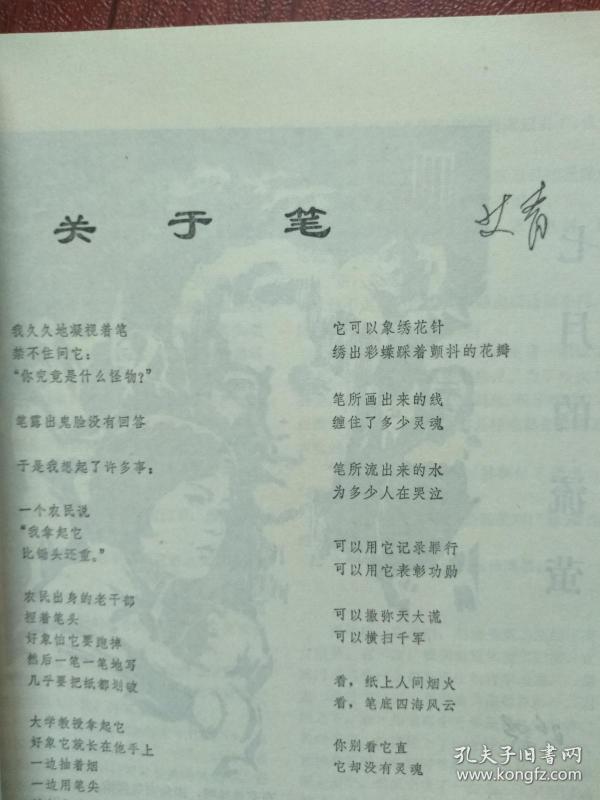 关于笔
艾青
我久久地凝视着笔
禁不住问它：
“你究竟是什么怪物？”
笔露出鬼脸没有回答
于是我想起了许多事：
一个农民说
“我拿起它
比锄头还重。”
农民出身的老干部
捏着笔头
好象怕它要跑掉
然后一笔一笔地写
几乎要把纸都划破
大学教授拿起它
好象它就长在他手上
一边抽着烟
一边用笔尖
它可以象绣花针
绣出彩蝶踩着颤抖的花瓣
笔所画出来的线
缠住了多少灵魂
笔所流出来的水
为多少人在哭泣
可以用它记录罪行
可以用它表彰功勋
可以撒弥天大谎
可以横扫千军
看，纸上人间烟火
看，笔底四海风云
你别看它直
它却没有灵魂
七月的流萤
孔夫子旧书网
www.kongfz.com